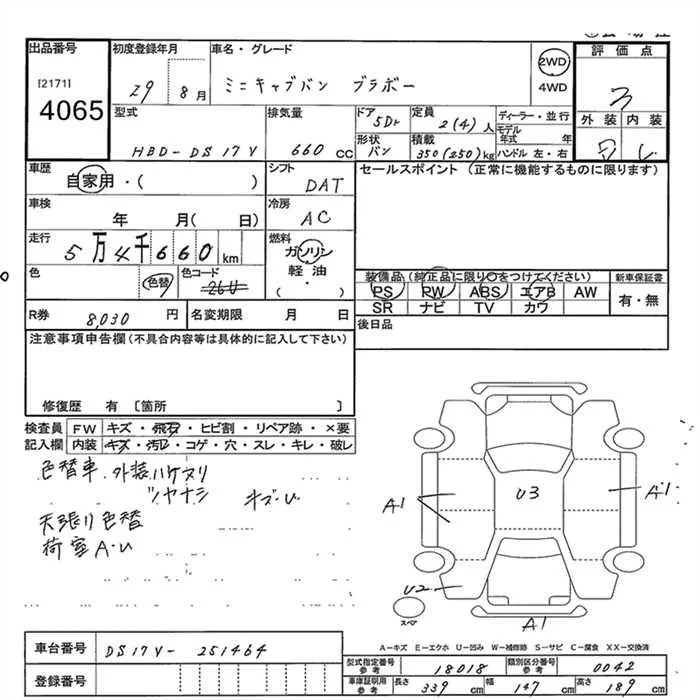 出品番号 初度登録年月 車名・グレード 2WD 評価点
[2171] 4065 29 8月 ミニキャブバン ブラボー 4WD 3
型式 排気量 ドア 5Dr 定員 2(4)人 ディーラー・並行 外装 内装
HBD-DS17V 660 CC 形状 バン 積載 350(250)kg モデル年式 年 ハンドル 左・右
車歴 自家用・( ) シフト DAT セールスポイント (正常に機能するものに限ります)
車検 年 月( 日) 冷房 AC
走行 5万4千660km 燃料 ガソリン
色 色替 色コード 26U 軽油・( ) 装備品 (純正品に限り○をつけてください) 新車保証書
PS PW ABS エアB AW 有・無
SR ナビ TV カワ
R券 8,030 円 名変期限 月 日 後日品
注意事項申告欄 (不具合内容等は具体的に記入して下さい)
修復歴 有 [箇所 ]
検査員 FW キズ・飛石・ヒビ割・リペア跡・×要
記入欄 内装 キズ・汚レ・コゲ・穴・スレ・キレ・破レ
色替車 外装ハケヌリ
ツヤナシ キズ・U
天張り色替
荷室A・U
A1 U3 A1
U2 A1
スペア
A-キズ E-エクボ U-凹み W-補修跡 S-サビ C-腐食 XX-交換済
車台番号 DS17V-251464
型式指定番号 参考 18018 類別区分番号 参考 0042
登録番号 車庫証明用 参考 長さ 339 cm 幅 147 cm 高さ 189 cm